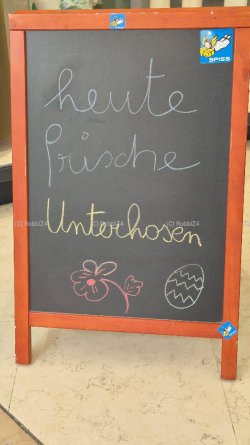 SPIESS
heute
frische
(C) RobbiZ4 (C) RobbiZ4 (C) RobbiZ4
Unterhosen